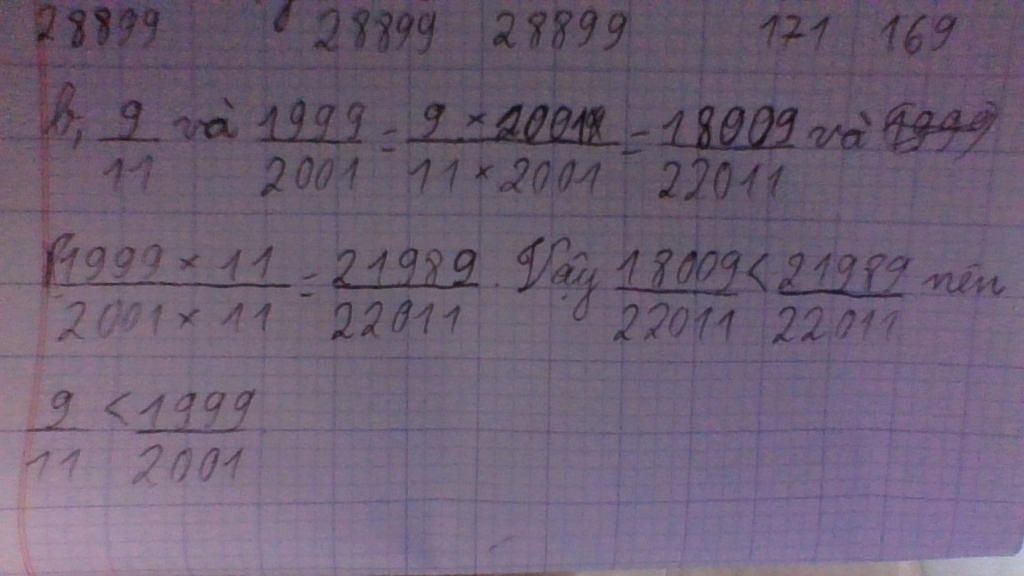 28899 28899 28899 171 169
b, 9/11 và 1999/2001 = 9 × 2001/11 × 2001 = 18009/22011 và
1999 × 11/2001 × 11 = 21989/22011. Vậy 18009/22011 < 21989/22011 nên
9/11 < 1999/2001